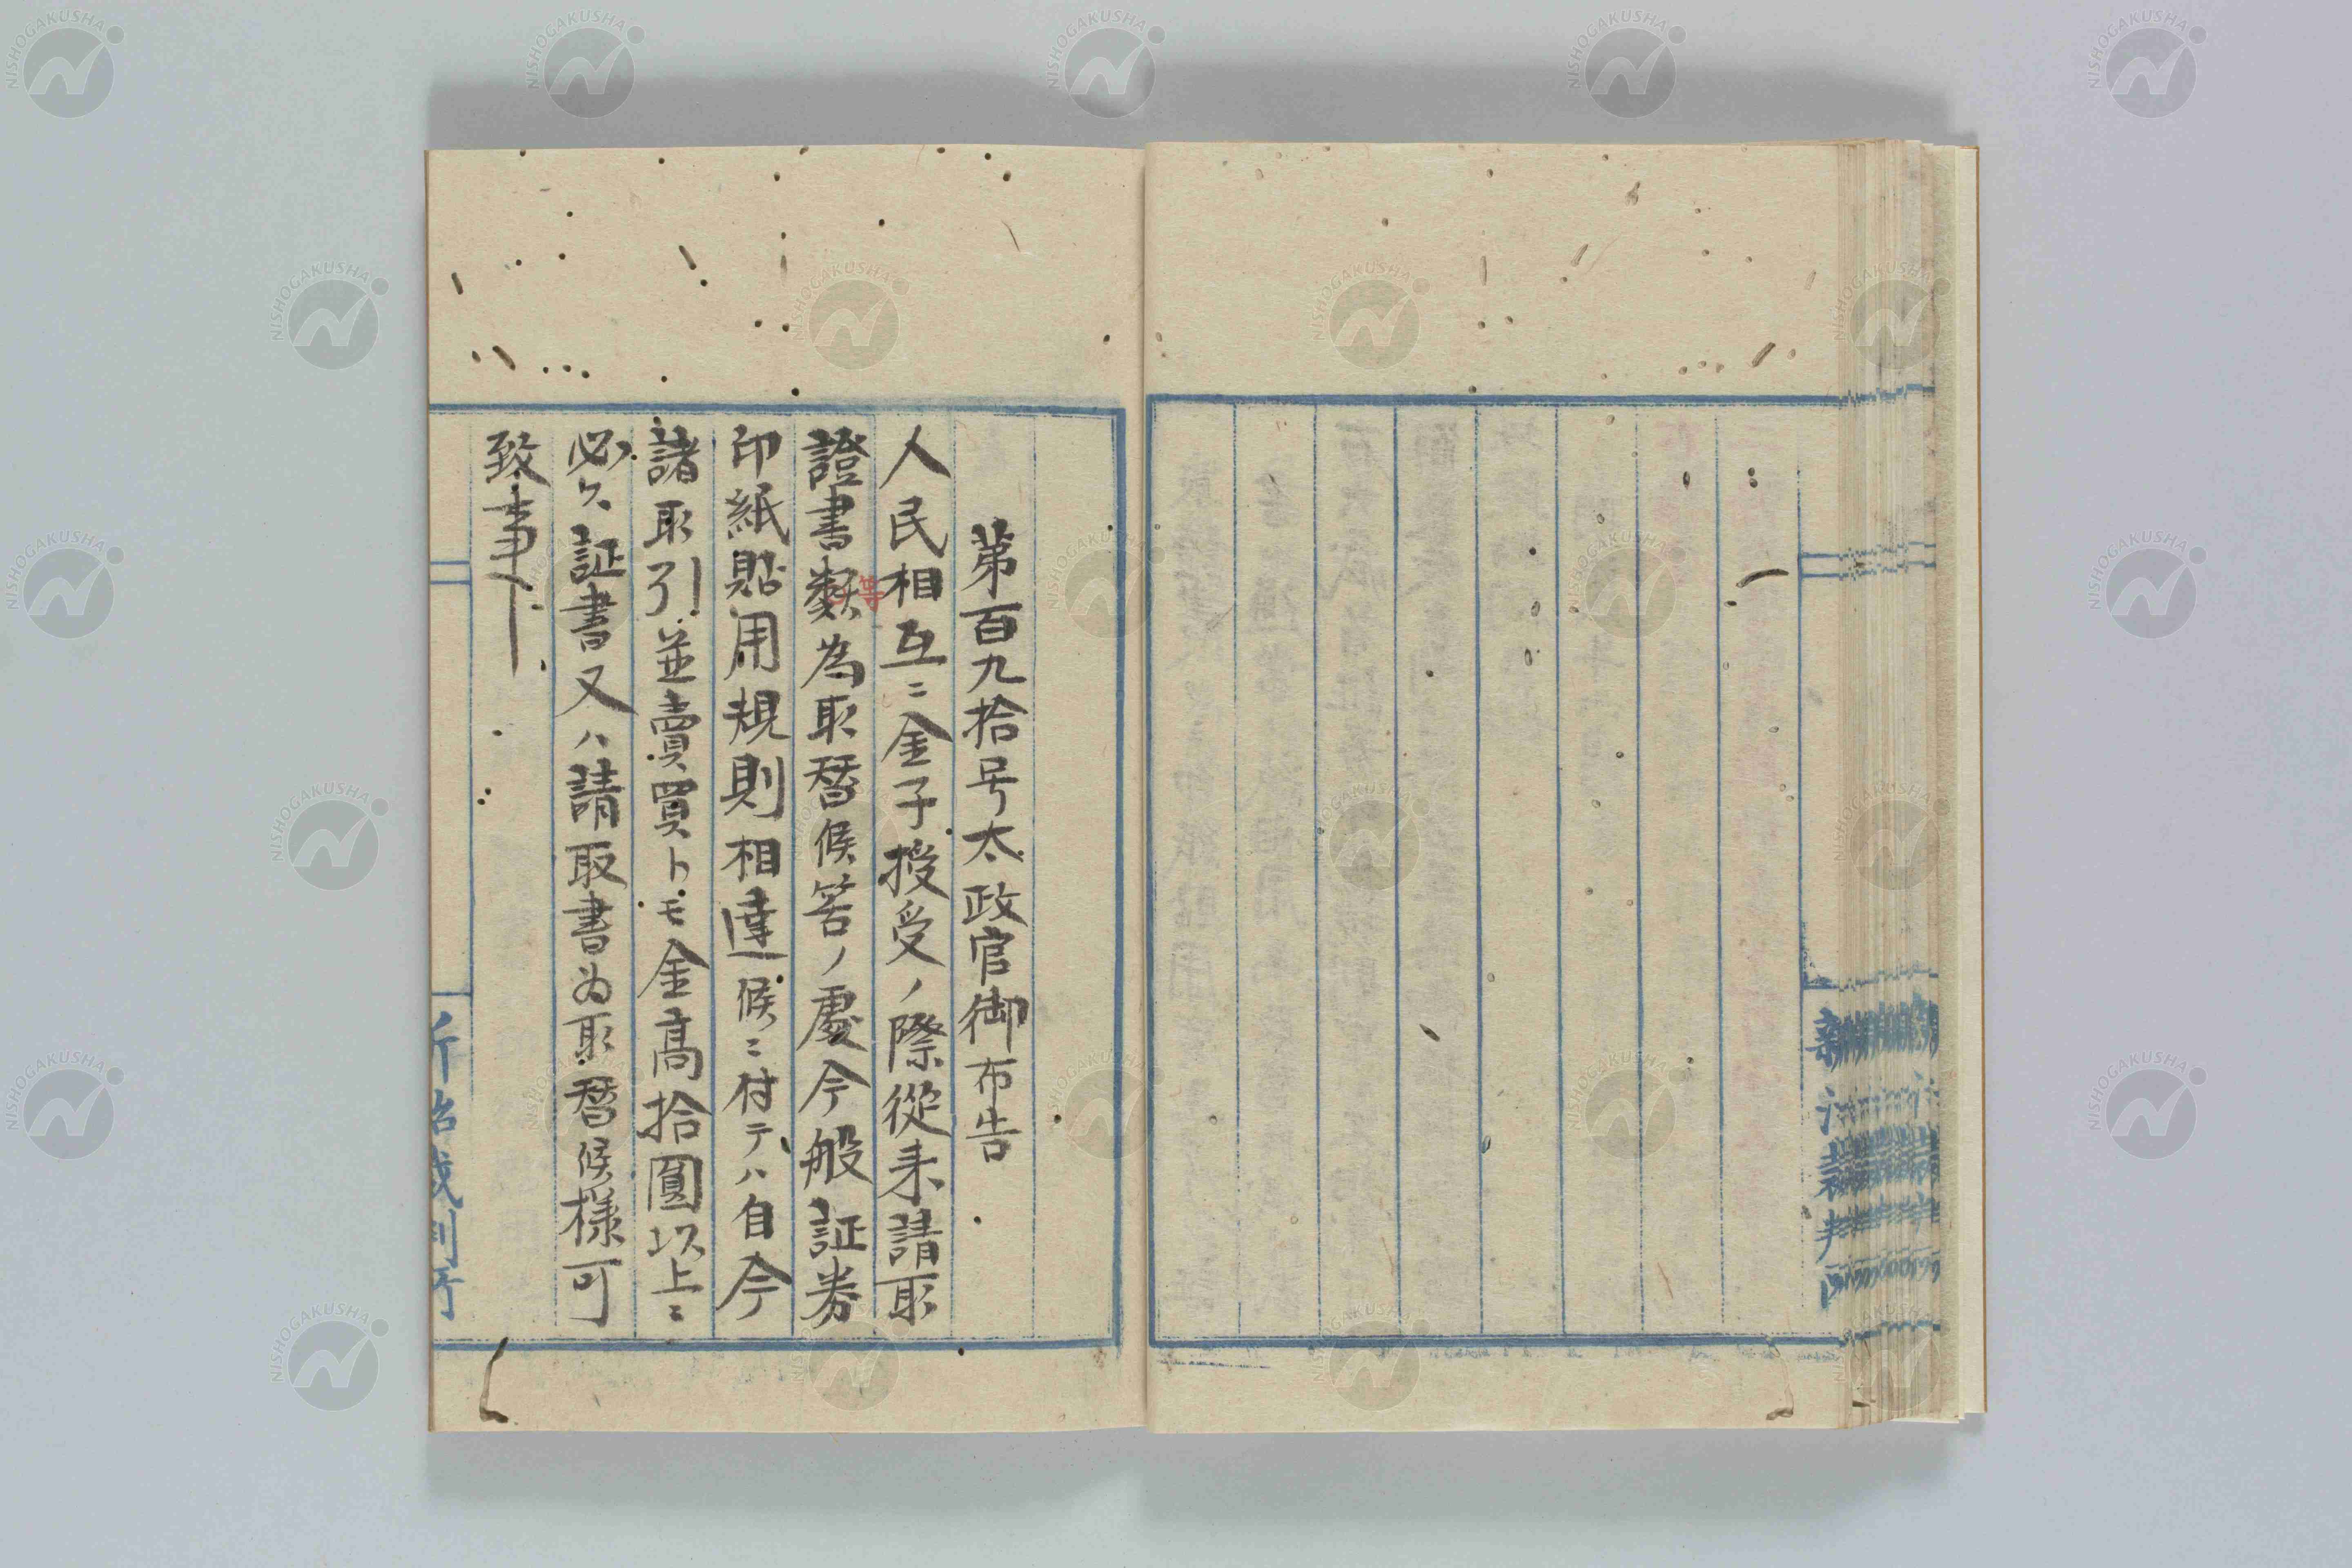 第百九拾号太政官御布告
人民相互ニ金子授受ノ際從来請取
證書類等為取替候筈ノ處今般証券
印紙貼用規則相達候ニ付テハ自今
諸取引並賣買トモ金高拾圓以上ニ
必ス証書又ハ請取書為取替候様可
致事
新治裁判所
NISHOGAKUSHA